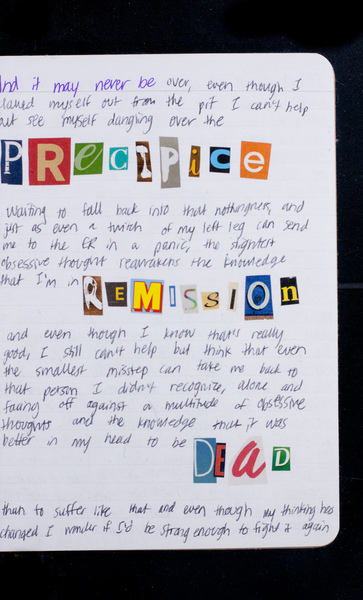 And it may never be over, even though I
clawed myself out from the pit I can't help
but see myself dangling over the
PRECIPICE
waiting to fall back into that nothingness, and
just as even a twitch of my left leg can send
me to the ER in a panic, the slightest
obsessive thought reawakens the knowledge
that I'm in REMISSIon
and even though I know that's really
good, I still can't help but think that even
the smallest misstep can take me back to
that person I didn't recognize, alone and
facing off against a multitude of obsessive
thoughts and the knowledge that it was
better in my head to be DEaD
than to suffer like that and even though my thinking has
changed I wonder if I'd be strong enough to fight it again